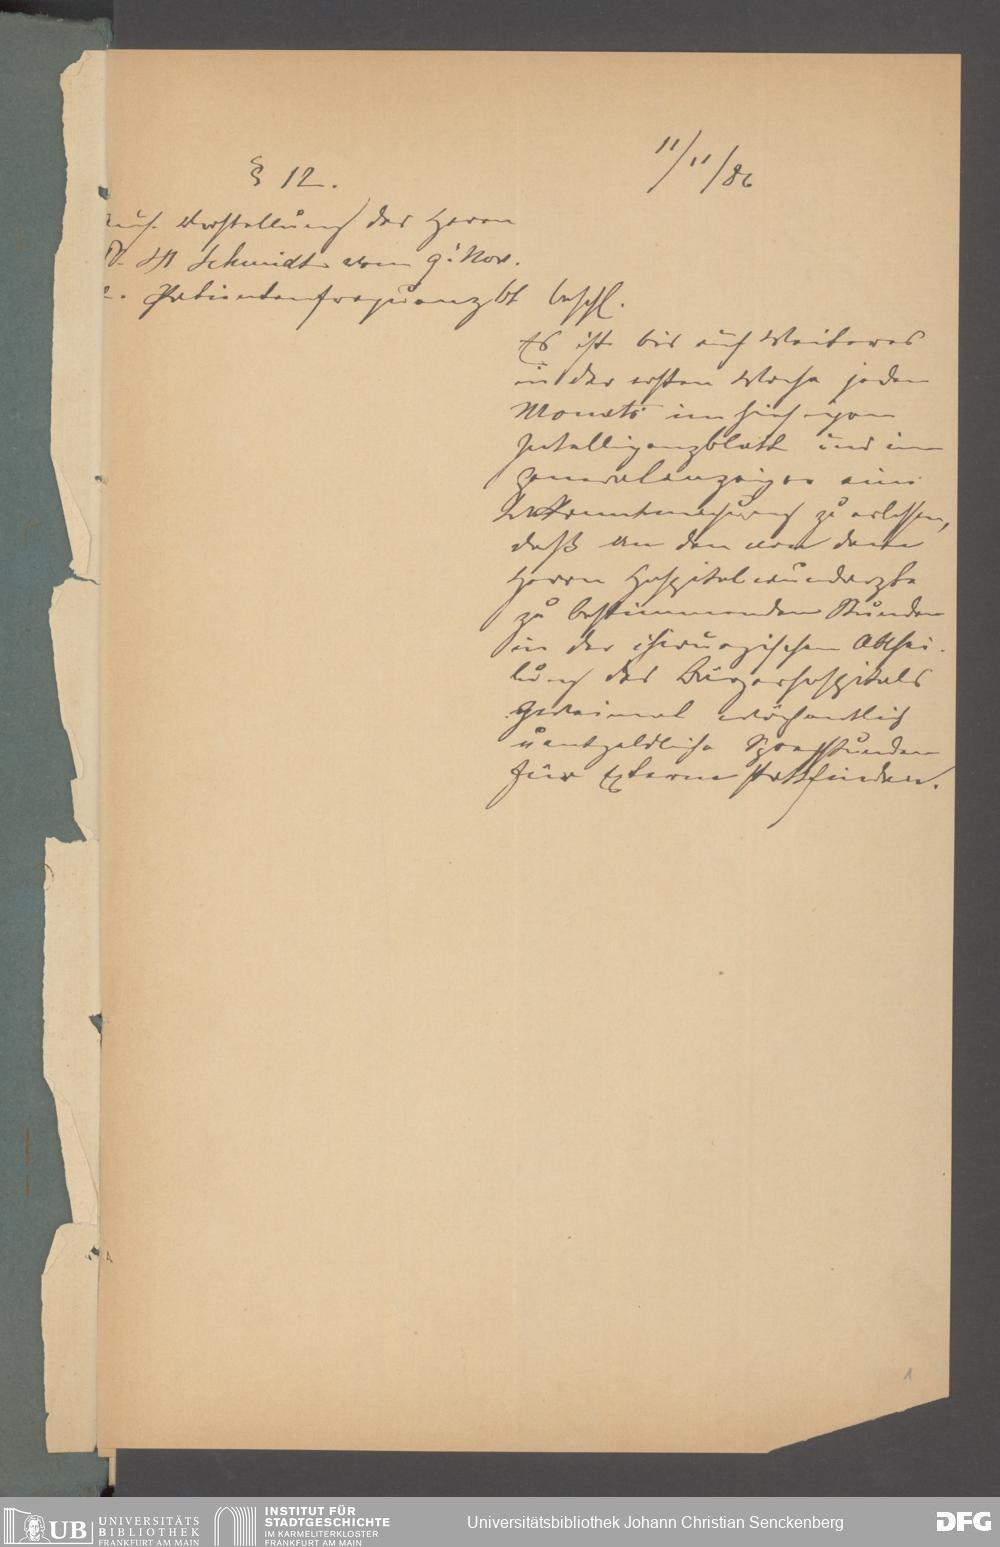 § 12.
11/11/86
Auf Vorstellung des Herrn
Dr. Schmidt vom 9. Nov.
Patientenfrequenz btr. beschl.
Es ist bis auf Weiteres
in der ersten Woche jeden
Monats im hiesigen
Intelligenzblatt und im
Generalanzeiger eine
Bekanntmachung zu erlassen,
daß an den von dem
Herrn Hospitalwundarzte
zu bestimmenden Stunden
in der chirurgischen Abthei-
lung des Bürgerhospitals
zweimal wöchentlich
unentgeldliche Sprechstunden
für Externe stattfinden.
1
UB UNIVERSITÄTS
BIBLIOTHEK
FRANKFURT AM MAIN
INSTITUT FÜR
STADTGESCHICHTE
IM KARMELITERKLOSTER
FRANKFURT AM MAIN
Universitätsbibliothek Johann Christian Senckenberg
DFG